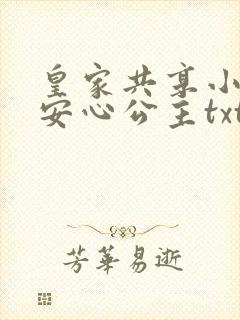 皇家共享小
安心公主txt
芳华易逝